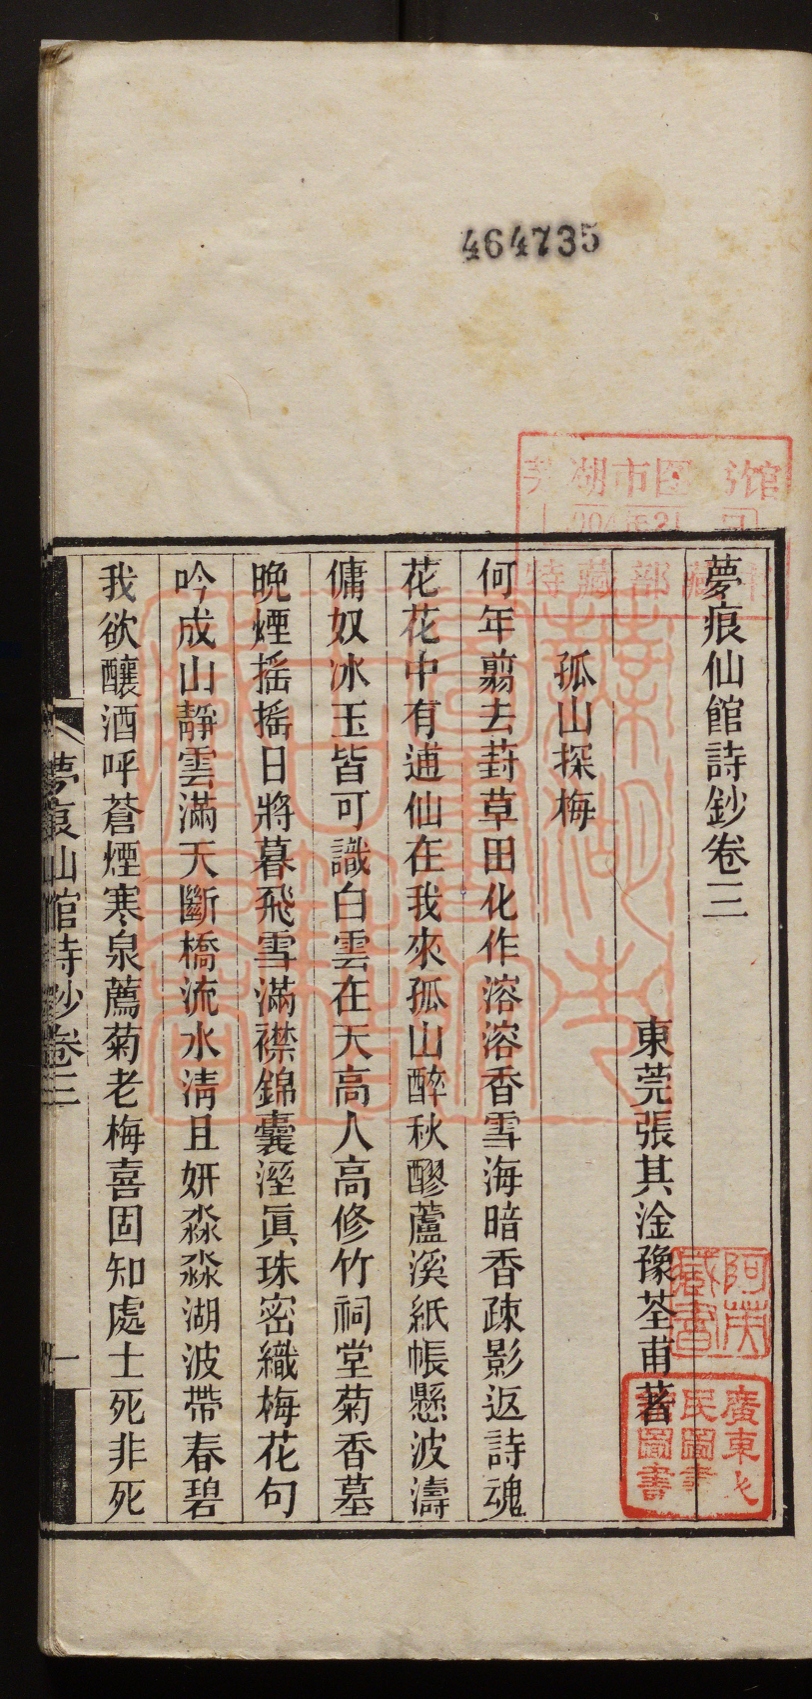 464735
夢痕仙館詩鈔卷三
東莞張其淦豫荃甫著
孤山探梅
何年翦去葑草田化作溶溶香雪海暗香疎影返詩魂
花花中有逋仙在我來孤山醉秋醪蘆溪紙帳懸波濤
傭奴冰玉皆可識白雲在天高人高修竹祠堂菊香墓
晚煙搖搖日將暮飛雪滿襟錦囊溼眞珠密織梅花句
吟成山靜雲滿天斷橋流水淸且妍淼淼湖波帶春碧
我欲釀酒呼蒼煙寒泉薦菊老梅喜固知處士死非死
夢痕仙館詩鈔卷三
一
湖市图书馆
特藏部藏
廣東人民圖書
藏書